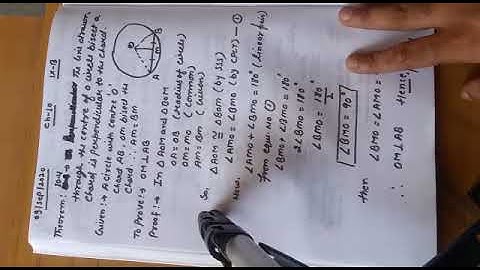 09/sep/2020 ch-10 IX-B
Theorem: 10.4 The line drawn
through the centre of a circle bisect a
chord is perpendicular to the chord.
Given:→ A circle with centre 'o'
chord AB, om bisect the
chord ∴ Am=Bm
To Prove:→ OM⊥AB
Proof:→ In △AOM and △BOM
OA = OB (Radius of circle)
OM = MO (common)
AM = BM (Given)
So, △AOM ≅ △BOM (by SSS)
∠AMO = ∠BMO (by CPCT) —①
Now, ∠AMO + ∠BMO = 180° (Linear pair)
from equn no ①
∠BMO + ∠BMO = 180°
2∠BMO = 180°
∠BMO = 180°/2
∠BMO = 90°
then ∠BMO = ∠AMO =
∴ OM⊥AB
A
B
m